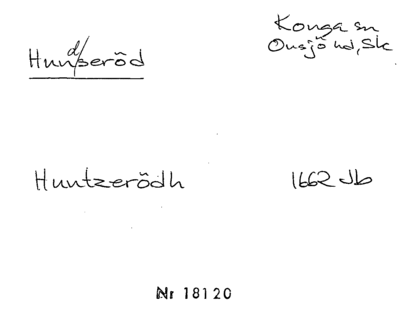 Hundseröd
Konga sn
Onsjö hd, Sk
Huntzerödh
1662 Jb
Nr 18120